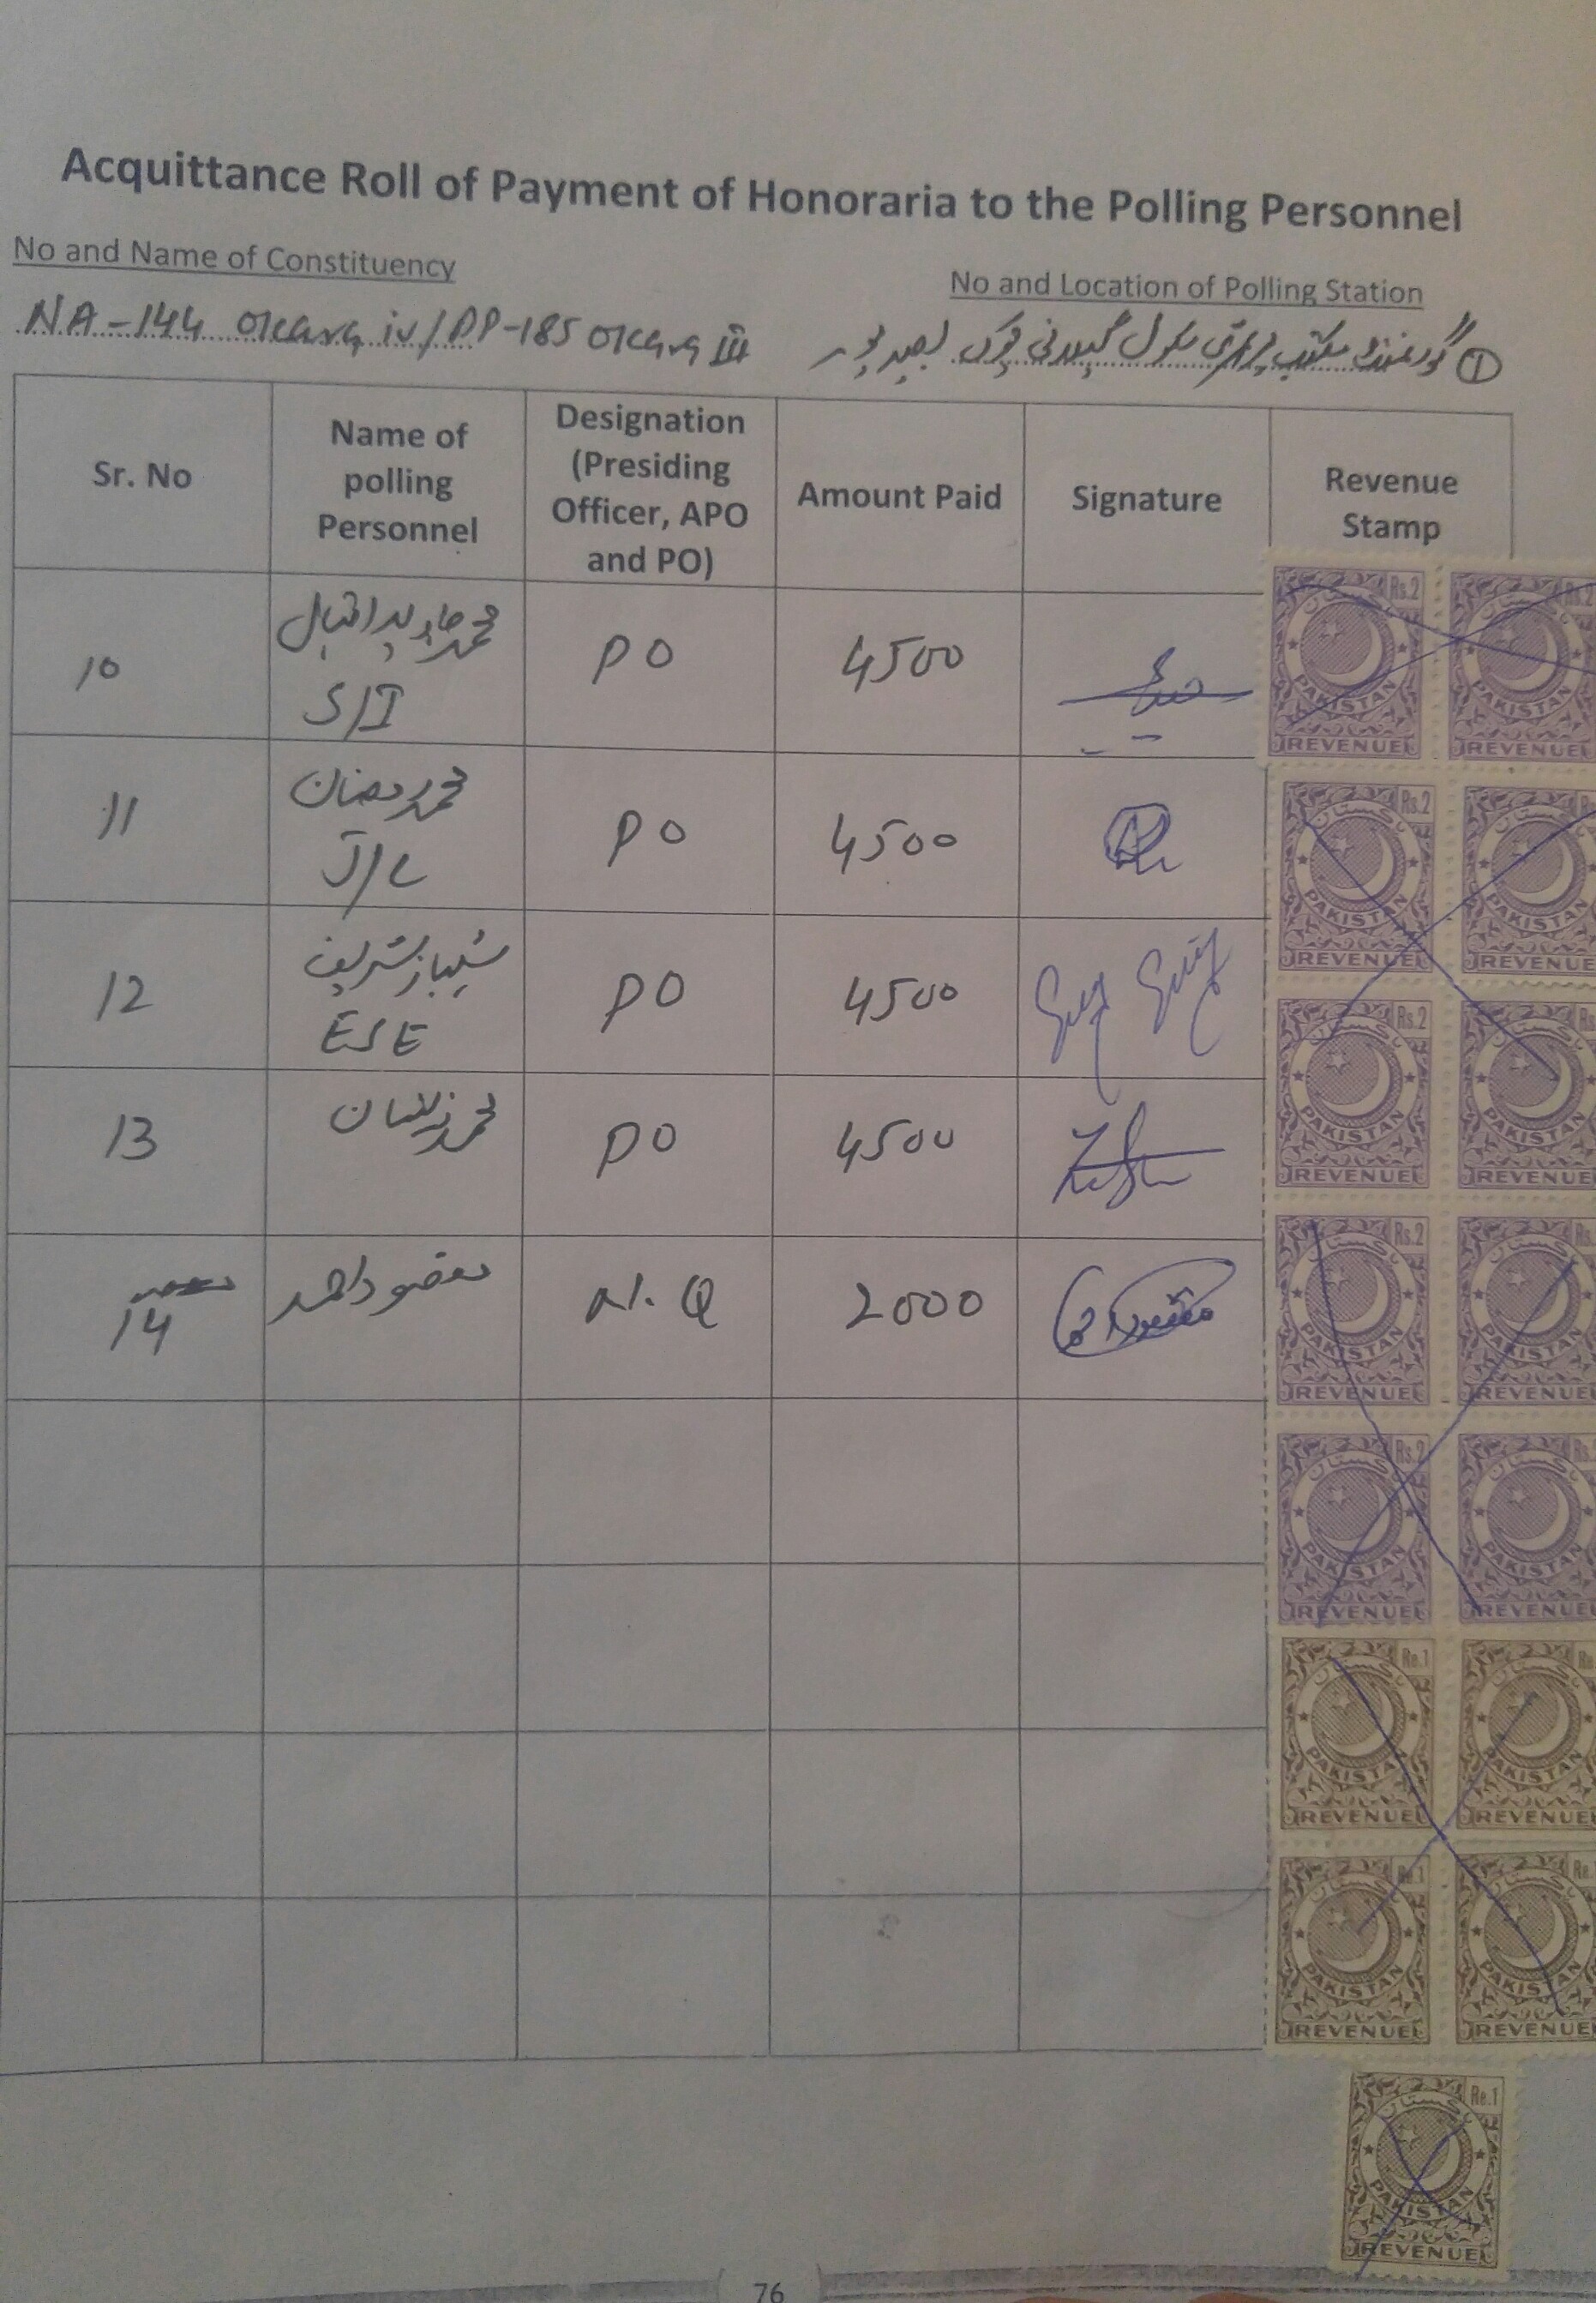 Acquittance Roll of Payment of Honoraria to the Polling Personnel
No and Name of Constituency
No and Location of Polling Station
NA-144 Okara iv/PP-185 Okara III
① گورنمنٹ مکتب پرائمری سکول گیلانی چوک بصیرپور
Sr. No
Name of
polling
Personnel
Designation
(Presiding
Officer, APO
and PO)
Amount Paid
Signature
Revenue
Stamp
10
محمد جاوید اقبال
S/I
PO
4500
11
محمد رمضان
J/C
PO
4500
12
شہباز شریف
ESE
PO
4500
13
محمد ذیشان
PO
4500
14
مقصود احمد
N.Q
2000
مقصود احمد
Rs.2
پاکستان
PAKISTAN
REVENUE
Rs.2
پاکستان
PAKISTAN
REVENUE
Rs.2
پاکستان
PAKISTAN
REVENUE
پاکستان
PAKISTAN
REVENUE
Rs.2
پاکستان
PAKISTAN
REVENUE
پاکستان
PAKISTAN
REVENUE
Rs.2
پاکستان
PAKISTAN
REVENUE
پاکستان
PAKISTAN
REVENUE
Rs.2
پاکستان
PAKISTAN
REVENUE
پاکستان
PAKISTAN
REVENUE
Re.1
پاکستان
PAKISTAN
REVENUE
پاکستان
PAKISTAN
REVENUE
Re.1
پاکستان
PAKISTAN
REVENUE
پاکستان
PAKISTAN
REVENUE
Re.1
پاکستان
PAKISTAN
REVENUE
76